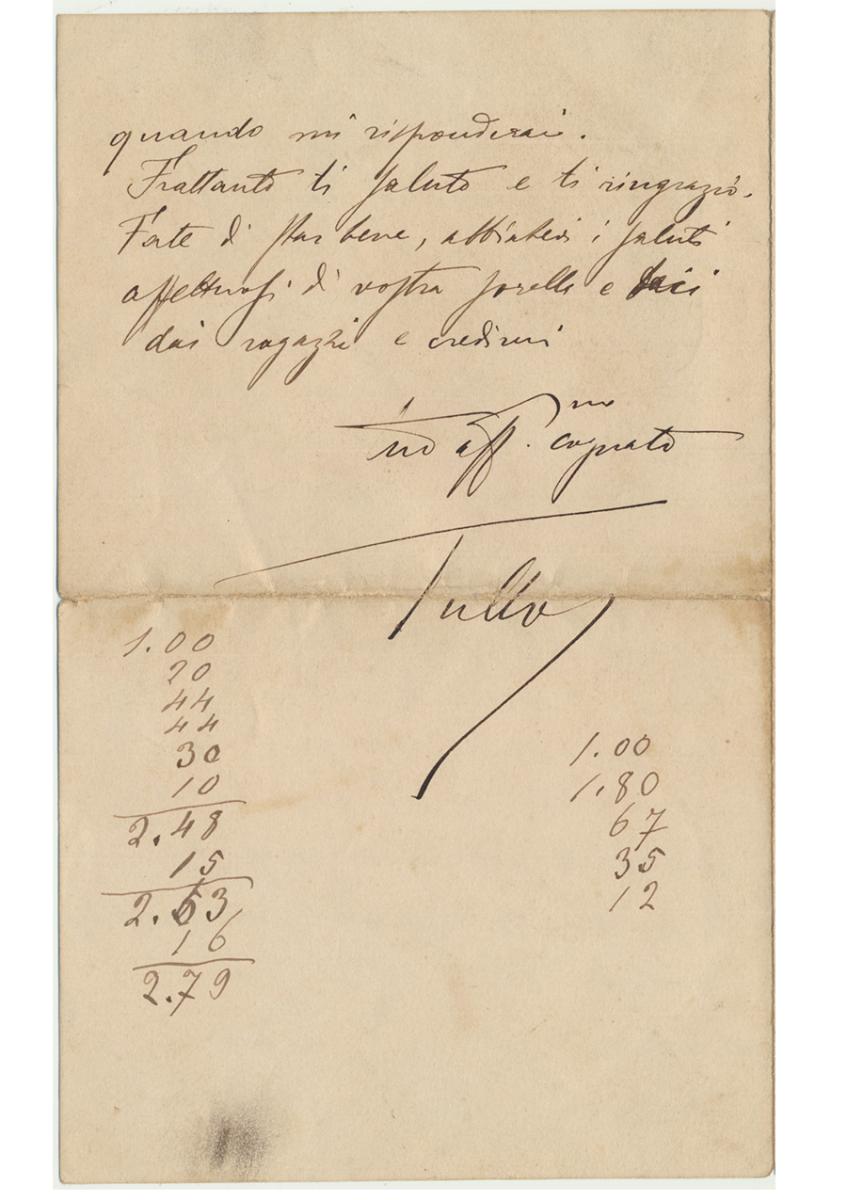 quando mi risponderai.
Frattanto ti saluto e ti ringrazio.
Fate di star bene, abbiatevi i saluti
affettuosi di vostra sorella e baci
dai ragazzi e credimi
tuo aff.mo cognato
Tullo
1.00
20
44
44
30
10
2.48
15
2.63
16
2.79
1.00
1.80
67
35
12